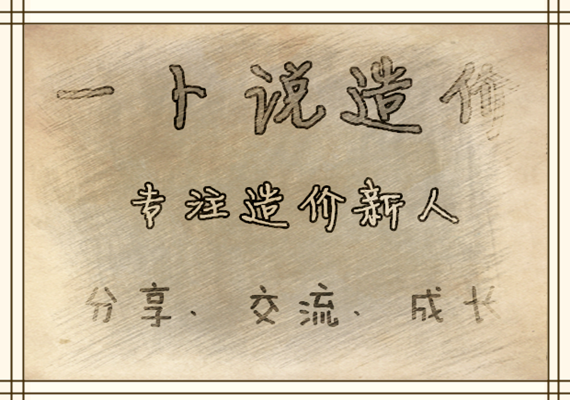 一卜说造价
专注造价新人
分享、交流、成长